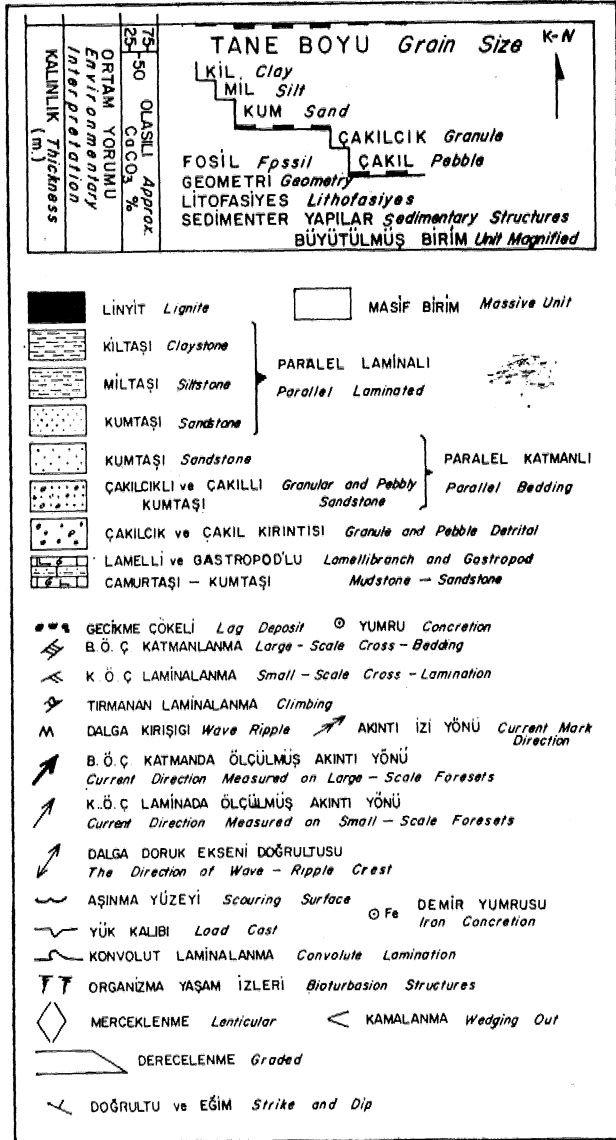 KALINLIK Thickness
(m.)
ORTAM YORUMU
Environmentary
Interpretation
75
50
25
OLASILI Approx.
CaCO3 %
TANE BOYU Grain Size
K-N
KİL Clay
MİL Silt
KUM Sand
ÇAKILCIK Granule
FOSİL Fossil
ÇAKIL Pebble
GEOMETRİ Geometry
LİTOFASİYES Lithofasiyes
SEDİMENTER YAPILAR Sedimentary Structures
BÜYÜTÜLMÜŞ BİRİM Unit Magnified
LİNYİT Lignite
MASİF BİRİM Massive Unit
KİLTAŞI Claystone
MİLTAŞI Siltstone
KUMTAŞI Sandstone
PARALEL LAMİNALI
Parallel Laminated
KUMTAŞI Sandstone
ÇAKILCIKLI ve ÇAKILLI Granular and Pebbly
KUMTAŞI Sandstone
PARALEL KATMANLI
Parallel Bedding
ÇAKILCIK ve ÇAKIL KIRINTISI Granule and Pebble Detrital
LAMELLİ ve GASTROPOD'LU Lamellibranch and Gastropod
CAMURTAŞI – KUMTAŞI Mudstone – Sandstone
GECİKME ÇÖKELİ Lag Deposit
YUMRU Concretion
B.Ö.Ç KATMANLANMA Large - Scale Cross - Bedding
K.Ö.Ç LAMİNALANMA Small - Scale Cross - Lamination
TIRMANAN LAMİNALANMA Climbing
DALGA KIRIŞIGI Wave Ripple
AKINTI İZİ YÖNÜ Current Mark
Direction
B.Ö.Ç KATMANDA ÖLÇÜLMÜŞ AKINTI YÖNÜ
Current Direction Measured on Large - Scale Foresets
K..Ö.Ç LAMİNADA ÖLÇÜLMÜŞ AKINTI YÖNÜ
Current Direction Measured on Small - Scale Foresets
DALGA DORUK EKSENİ DOĞRULTUSU
The Direction of Wave - Ripple Crest
AŞINMA YÜZEYİ Scouring Surface
Fe DEMİR YUMRUSU
Iron Concretion
YÜK KALIBI Load Cast
KONVOLUT LAMİNALANMA Convolute Lamination
ORGANİZMA YAŞAM İZLERİ Bioturbasion Structures
MERCEKLENME Lenticular
KAMALANMA Wedging Out
DERECELENME Graded
DOĞRULTU ve EĞİM Strike and Dip